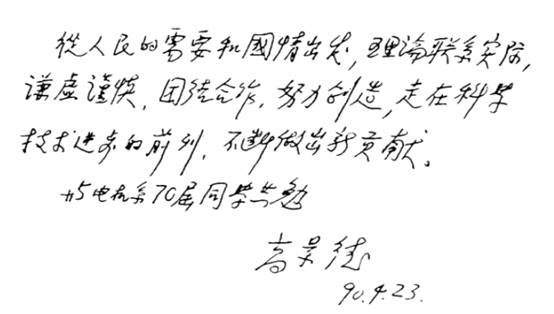 從人民的需要和國情出发,理論联系实际,
谦虚謹慎,团结合作,努力创造,走在科学
技术进步的前列,不断做出新贡献。
与电机系70届同学共勉
高景德
90.4.23.